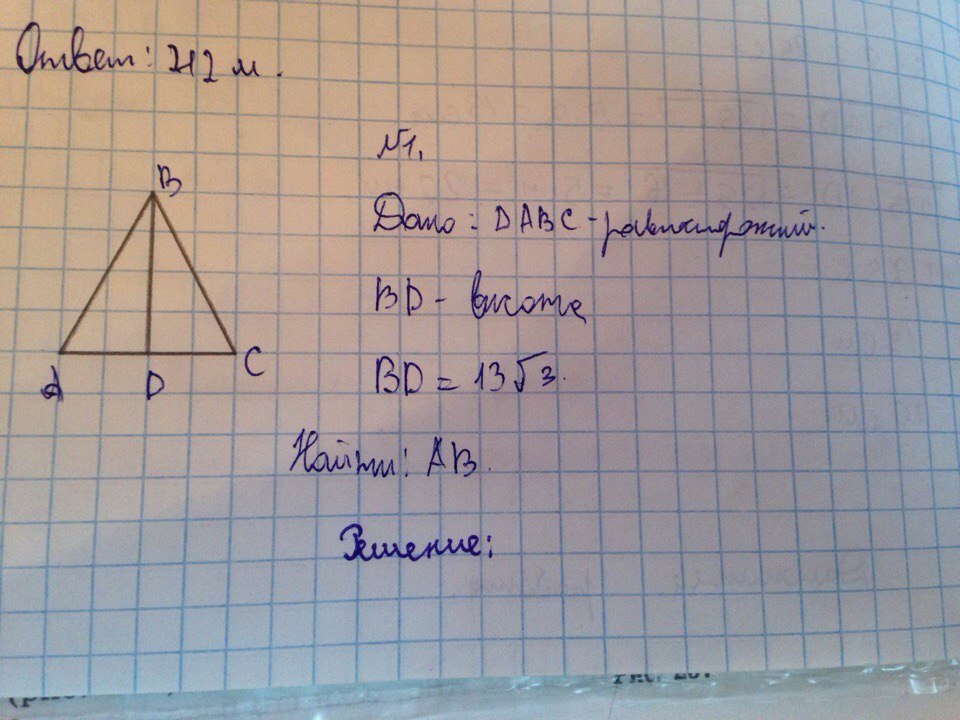 Ответ: 242 м.
№1.
B
Дано: DABC - равносторонний.
BD - высота
A D C
BD = 13√3.
Найти: AB.
Решение: